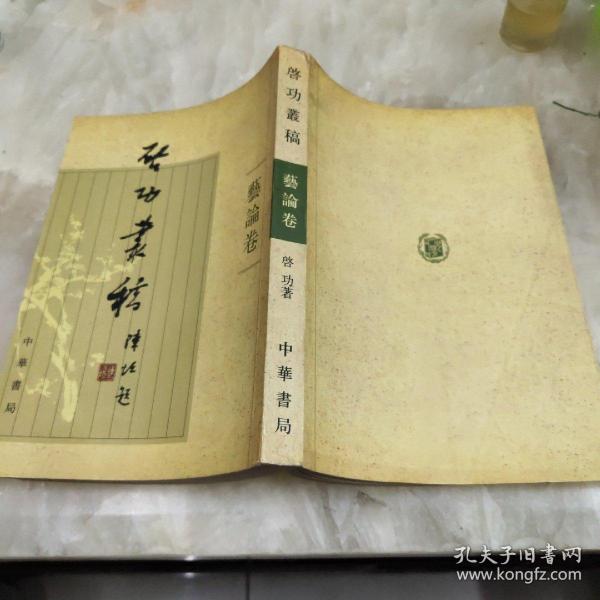 啓功叢稿
陳垣題
藝論卷
中華書局
啓功叢稿
藝論卷
啓功著
中華書局
孔夫子旧書网
www.kongfz.com